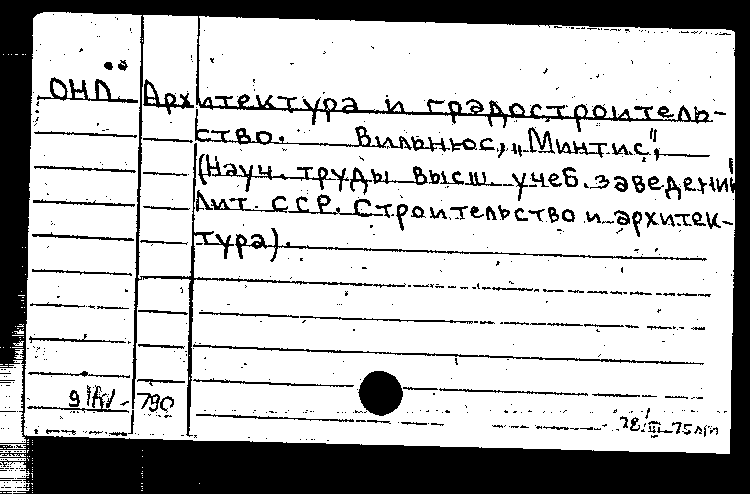 ОНЛ. Архитектура и градостроитель-
ство. Вильнюс, „Минтис",
(Науч. труды высш. учеб. заведений
Лит. ССР. Строительство и архитек-
тура).
790